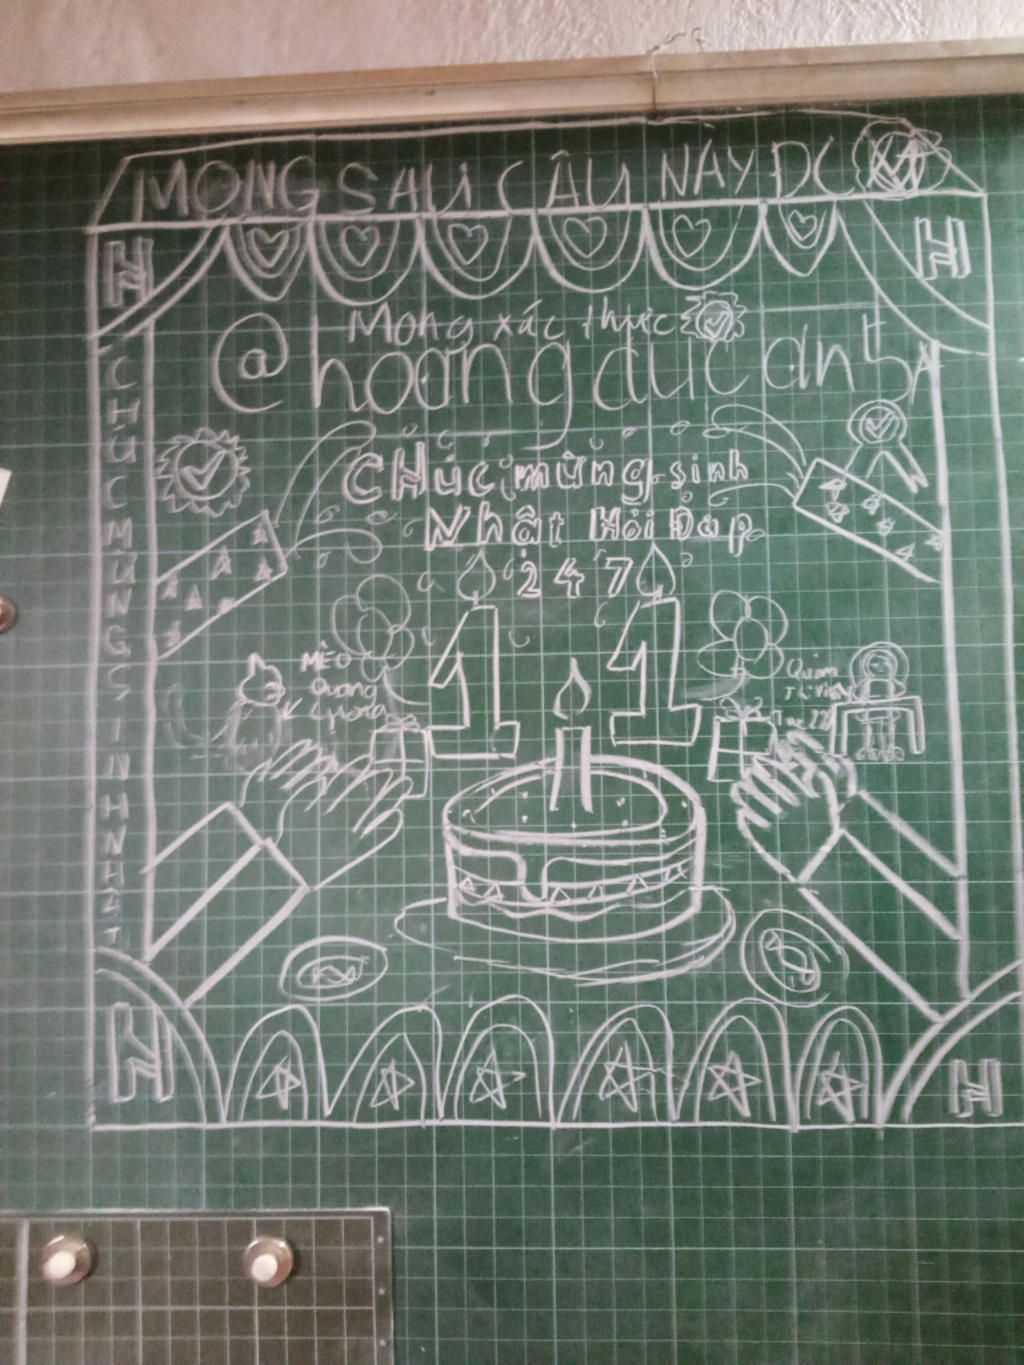 MONG SAU CÂU NÀY ĐC
H
H
Mong xác thực
@hoangducanh5A
CHÚC MỪNG SINH NHẬT
CHúc mừng sinh
Nhật Hỏi Đáp
247
MÈO
Quang
1 1
H
H